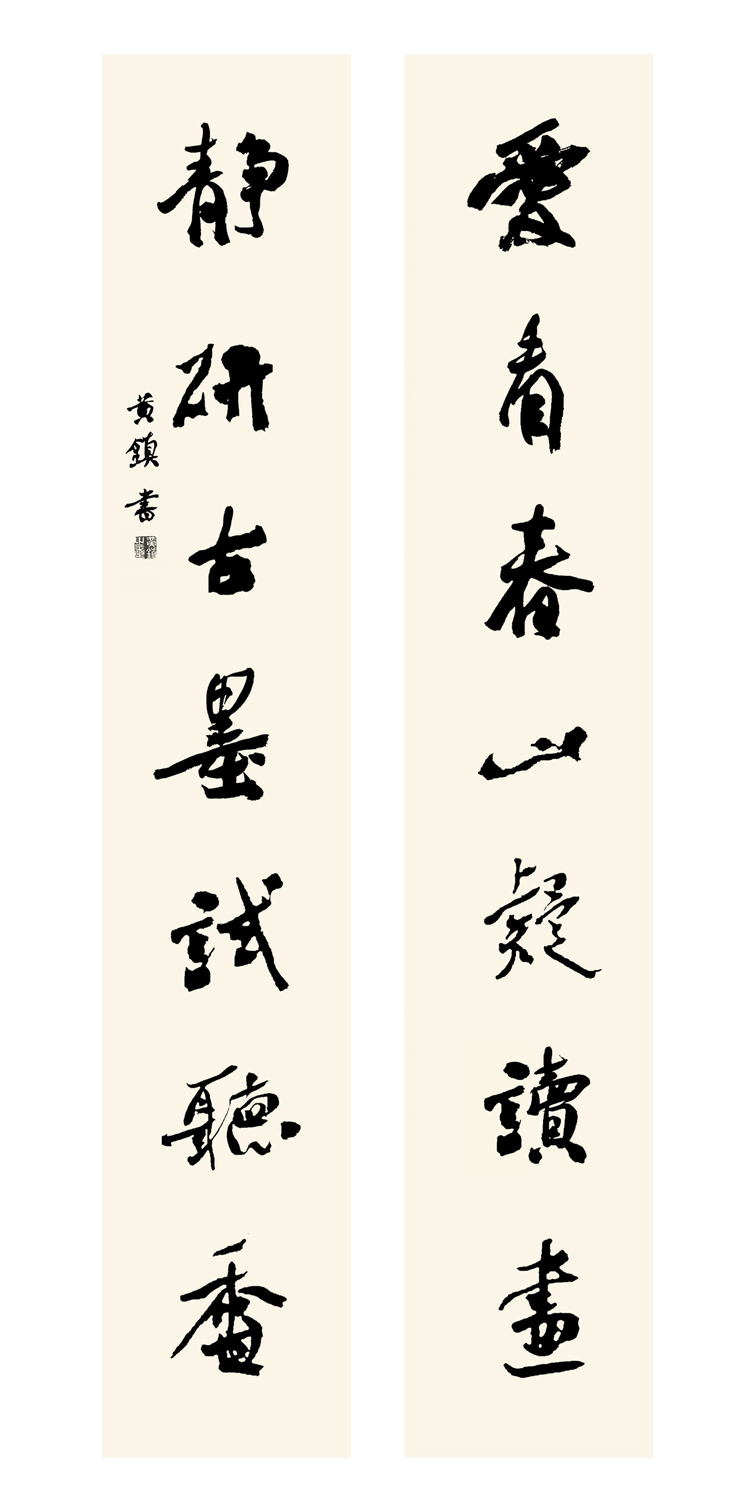 愛看春山疑讀畫
静研古墨試聽香
黄鎮書